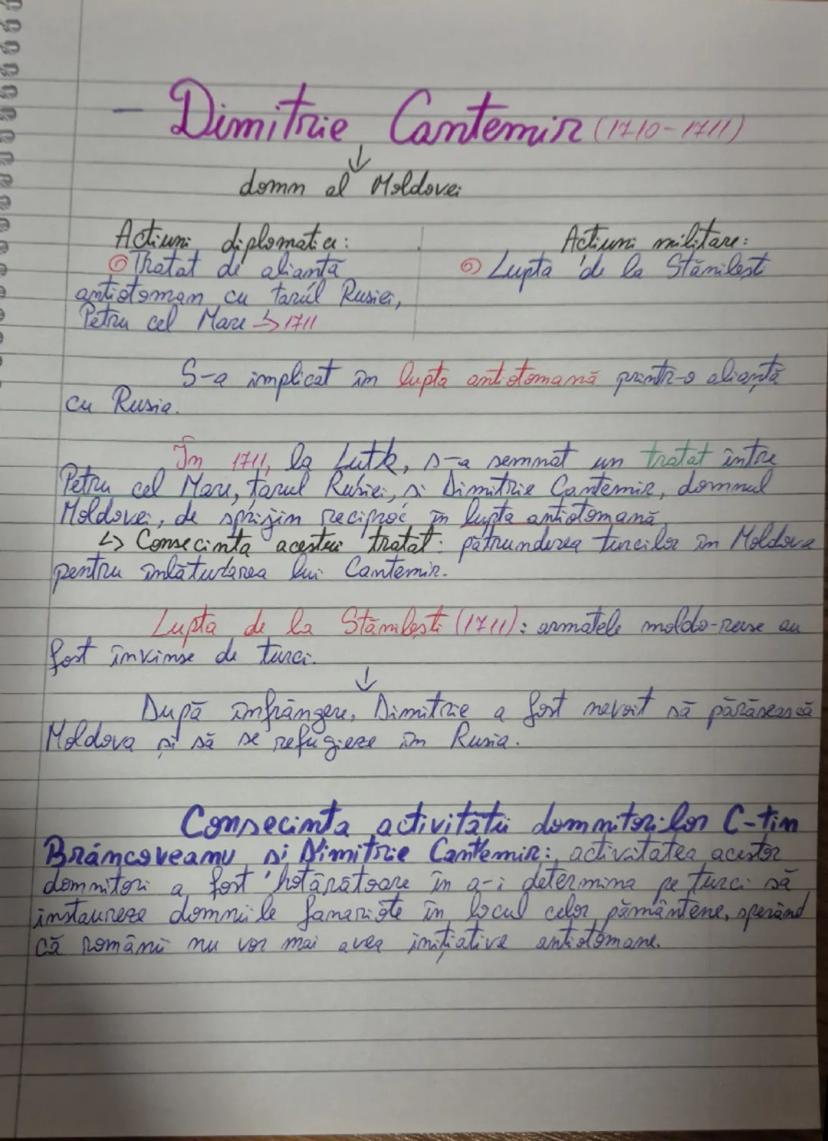 - Dimitrie Cantemir (1710-1711)
↓
domn al Moldovei
Acțiuni diplomatice:
Tratat de alianță
antiotoman cu țarul Rusiei,
Petru cel Mare ↳ 1711
Acțiuni militare:
Lupta de la Stănilești
S-a implicat în lupta antiotomană printr-o alianță
cu Rusia.
În 1711, la Lutk, s-a semnat un tratat între
Petru cel Mare, țarul Rusiei, și Dimitrie Cantemir, domnul
Moldovei, de sprijin reciproc în lupta antiotomană
↳ Consecința acestui tratat: pătrunderea turcilor în Moldova
pentru înlăturarea lui Cantemir.
Lupta de la Stănilești (1711): armatele moldo-ruse au
fost învinse de turci.
↓
După înfrângere, Dimitrie a fost nevoit să părăsească
Moldova și să se refugieze în Rusia.
Consecința activității domnitorilor C-tin
Brâncoveanu și Dimitrie Cantemir: activitatea acestor
domnitori a fost hotărâtoare în a-i determina pe turci să
instaureze domniile fanariote în locul celor pământene, sperând
că românii nu vor mai avea inițiative antiotomane.